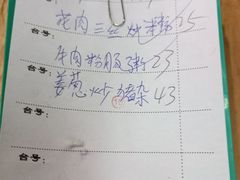 花肉三丝炒米粉 25
台号
牛肉粉服粥 23
台号
姜葱炒猪杂 43
台号
台号